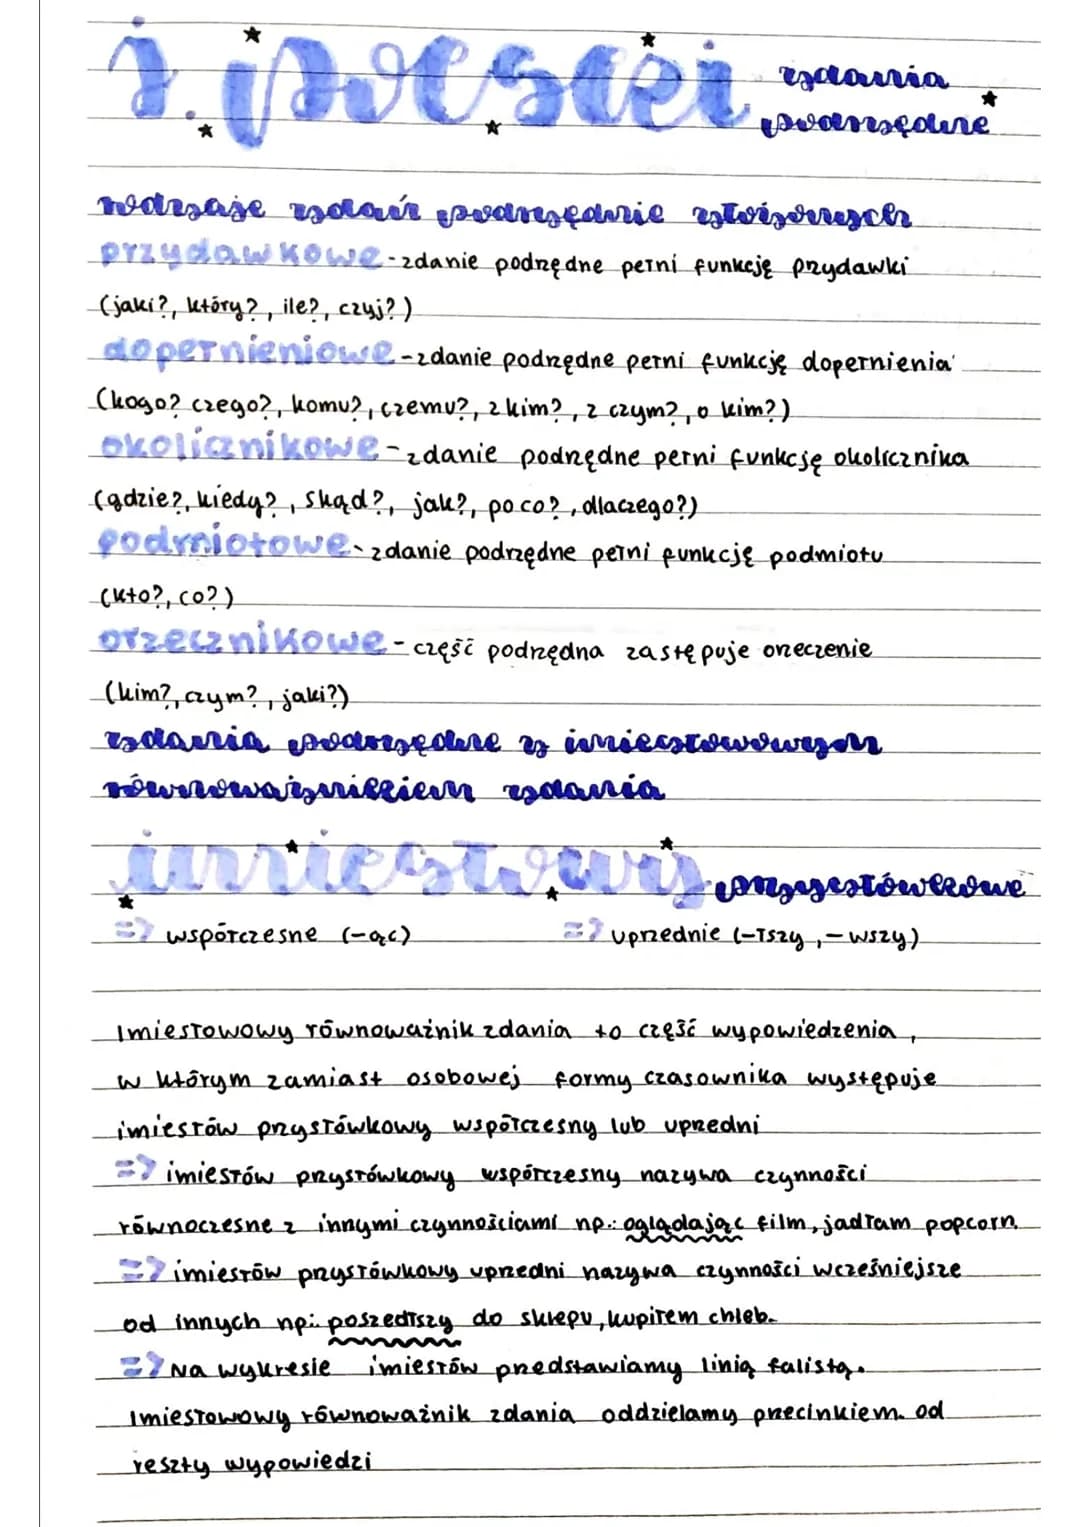 j. polski zdania
podrzędne
rodzaje zdań podrzędnie złożonych
przydawkowe - zdanie podrzędne pełni funkcję przydawki
(jaki?, który?, ile?, czyj?)
dopełnieniowe - zdanie podrzędne pełni funkcję dopełnienia
(kogo? czego?, komu?, czemu?, z kim?, z czym?, o kim?)
okolicznikowe - zdanie podrzędne pełni funkcję okolicznika
(gdzie?, kiedy?, skąd?, jak?, po co?, dlaczego?)
podmiotowe - zdanie podrzędne pełni funkcję podmiotu
(kto?, co?)
orzecznikowe - część podrzędna zastępuje orzeczenie
(kim?, czym?, jaki?)
zdania podrzędne z imiesłowowym
równoważnikiem zdania
imiesłowy przysłówkowe
=> współczesne (-ąc) => uprzednie (-łszy, -wszy)
Imiesłowowy równoważnik zdania to część wypowiedzenia,
w którym zamiast osobowej formy czasownika występuje
imiesłów przysłówkowy współczesny lub uprzedni
=> imiesłów przysłówkowy współczesny nazywa czynności
równoczesne z innymi czynnościami np.: oglądając film, jadłam popcorn.
=> imiesłów przysłówkowy uprzedni nazywa czynności wcześniejsze
od innych np.: poszedłszy do sklepu, kupiłem chleb.
=> Na wykresie imiesłów przedstawiamy linią falistą.
Imiesłowowy równoważnik zdania oddzielamy przecinkiem od
reszty wypowiedzi